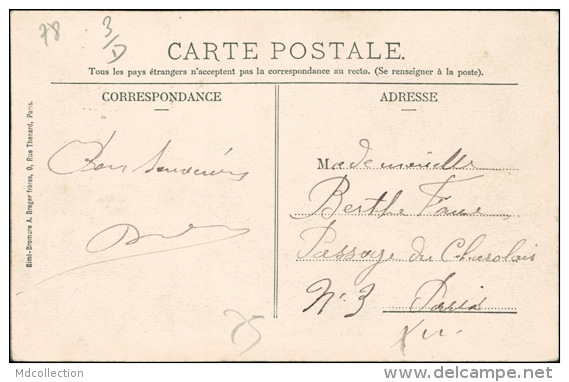 78
3/D
CARTE POSTALE.
Tous les pays étrangers n'acceptent pas la correspondance au recto. (Se renseigner à la poste).
CORRESPONDANCE
ADRESSE
Simi-Bromure A. Breger frères, 9, Rue Thenard, Paris.
Bon Souvenir
Mademoiselle
Berthe
Passage du Charolais
N° 3 Paris
XII
75
Mdcollection
delcampe.net